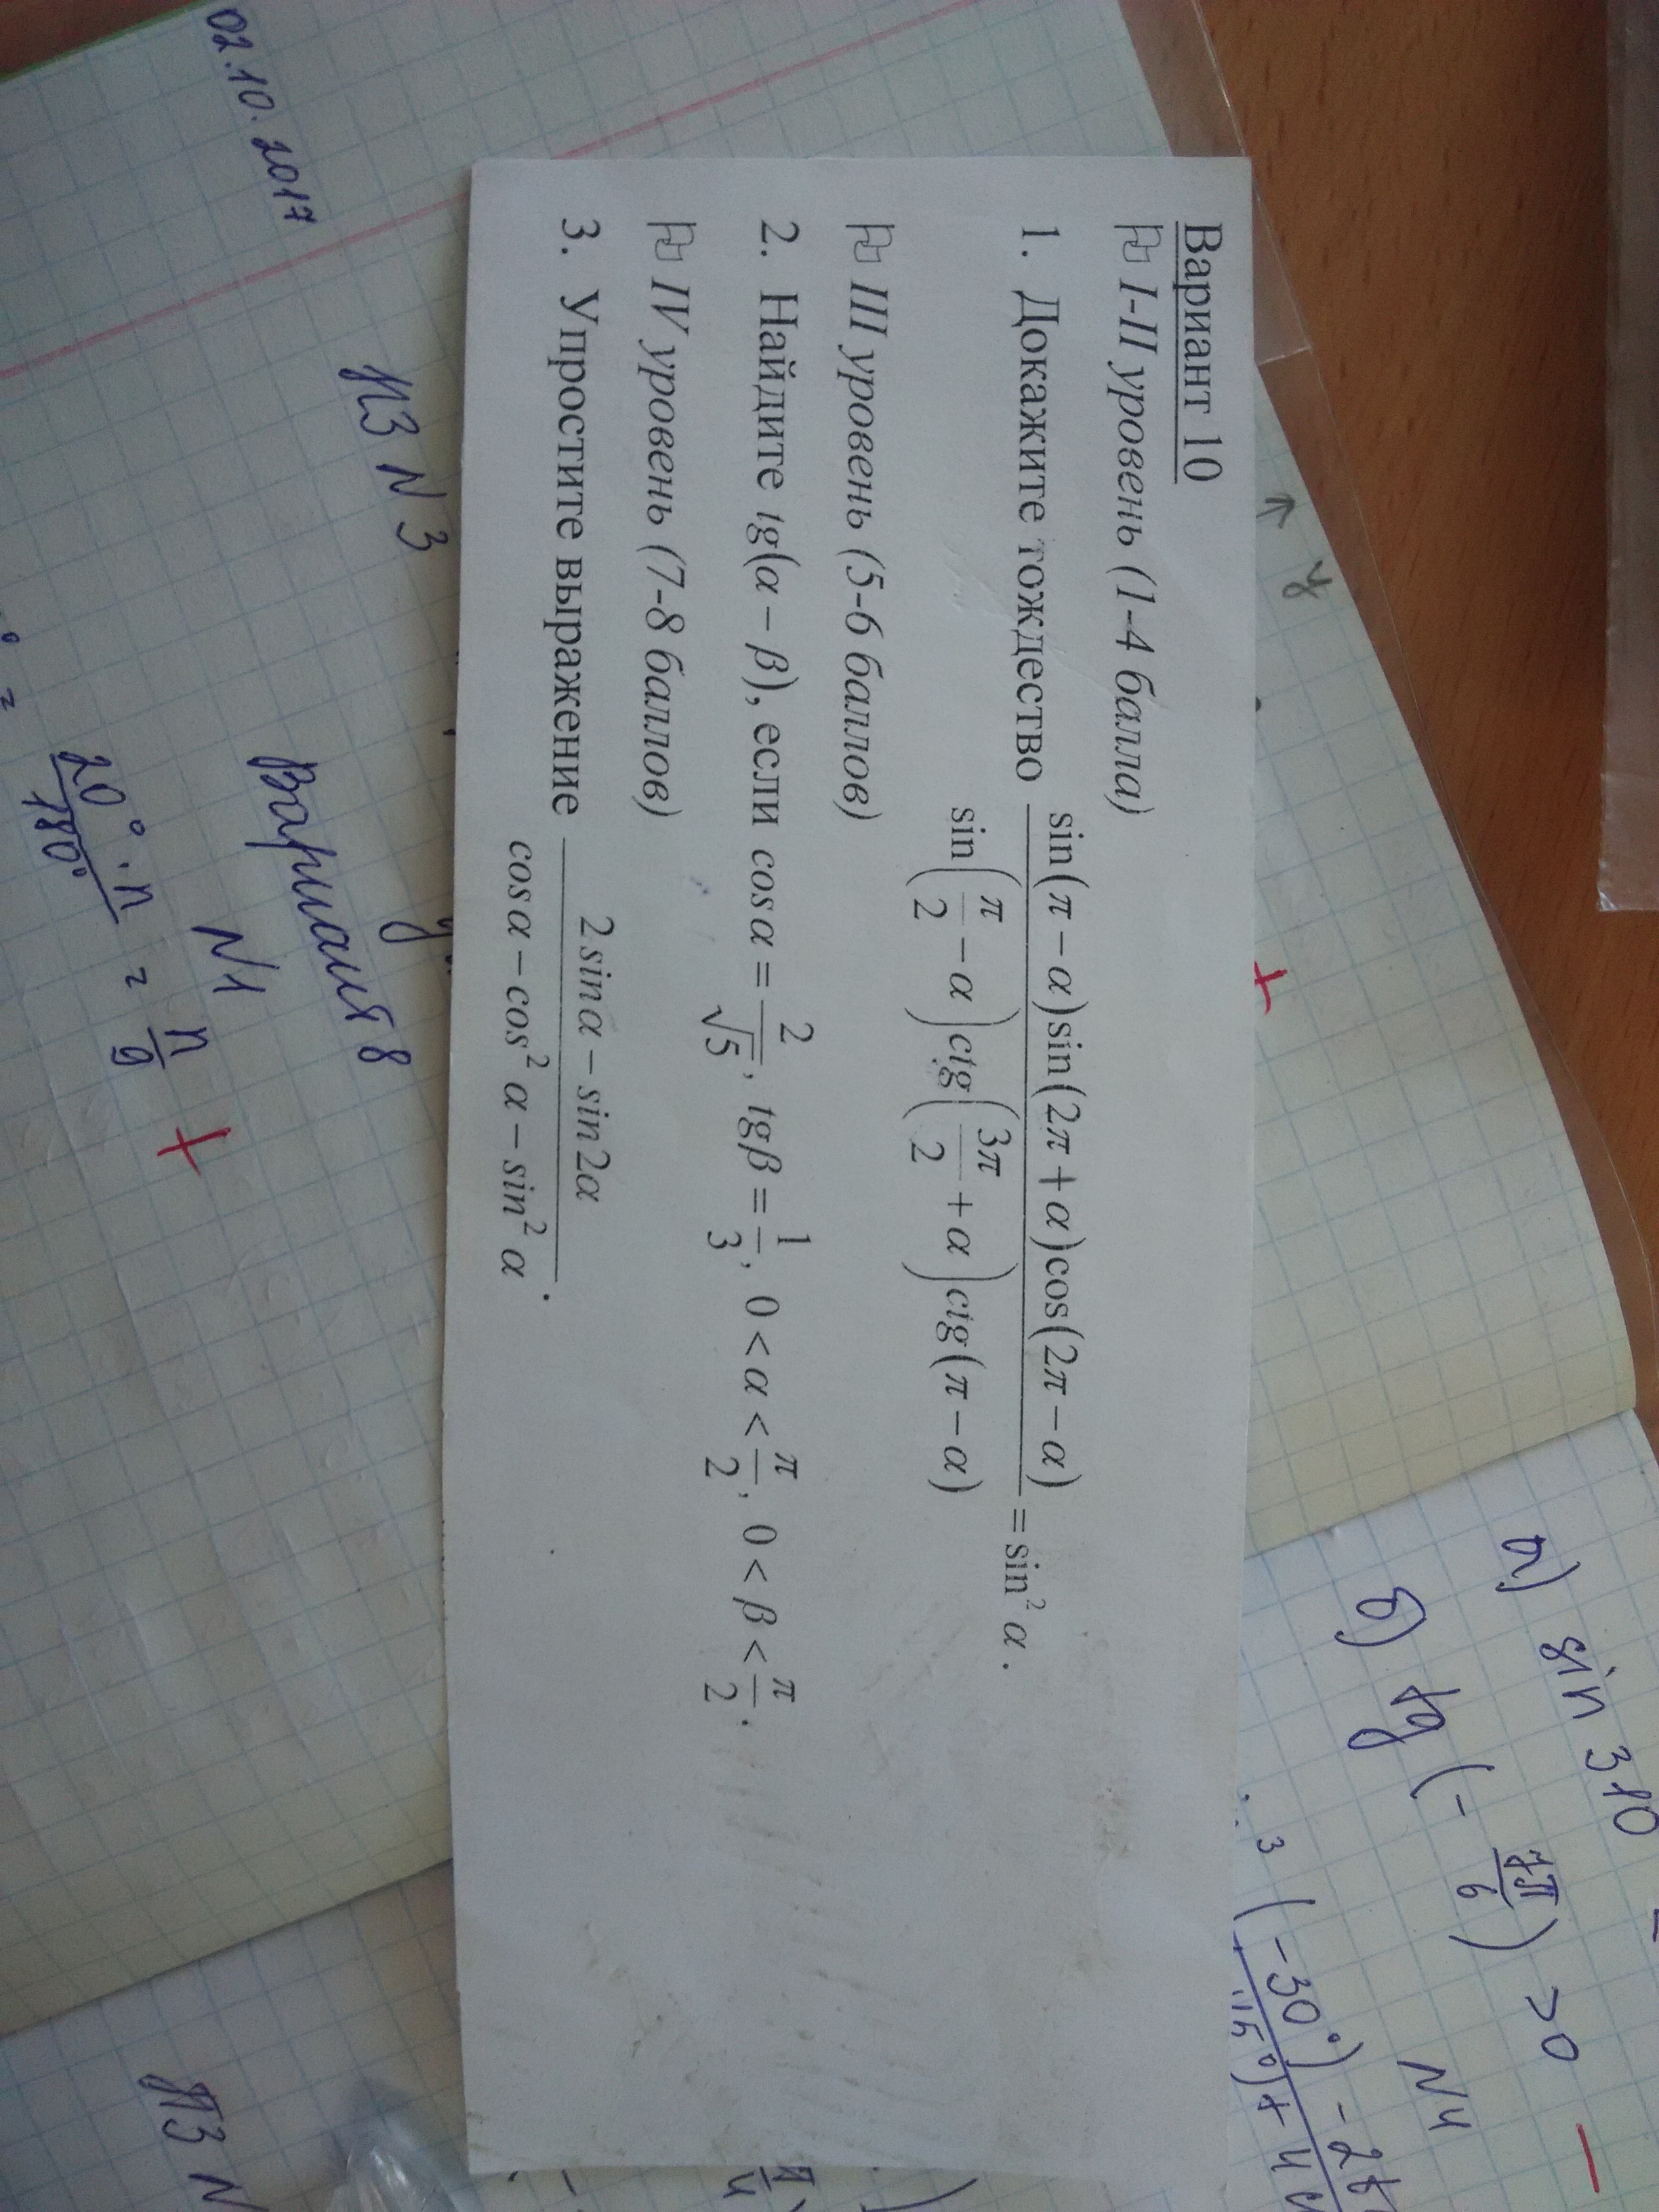 Вариант 10
I-II уровень (1-4 балла)
1. Докажите тождество sin(π − α)sin(2π + α)cos(2π − α) / sin(π/2 − α)ctg(3π/2 + α)ctg(π − α) = sin² α.
III уровень (5-6 баллов)
2. Найдите tg(α − β), если cos α = 2/√5, tgβ = 1/3, 0 < α < π/2, 0 < β < π/2.
IV уровень (7-8 баллов)
3. Упростите выражение 2 sin α − sin 2α / cos α − cos² α − sin² α.
02.10.2017
ПЗ N 3
Вариант 8
N1
20° · π / 180° = π/9
+
y
+
а) sin 310
б) tg (− 7π/6) > 0
N4
3 (−30°) − 2
ПЗ N